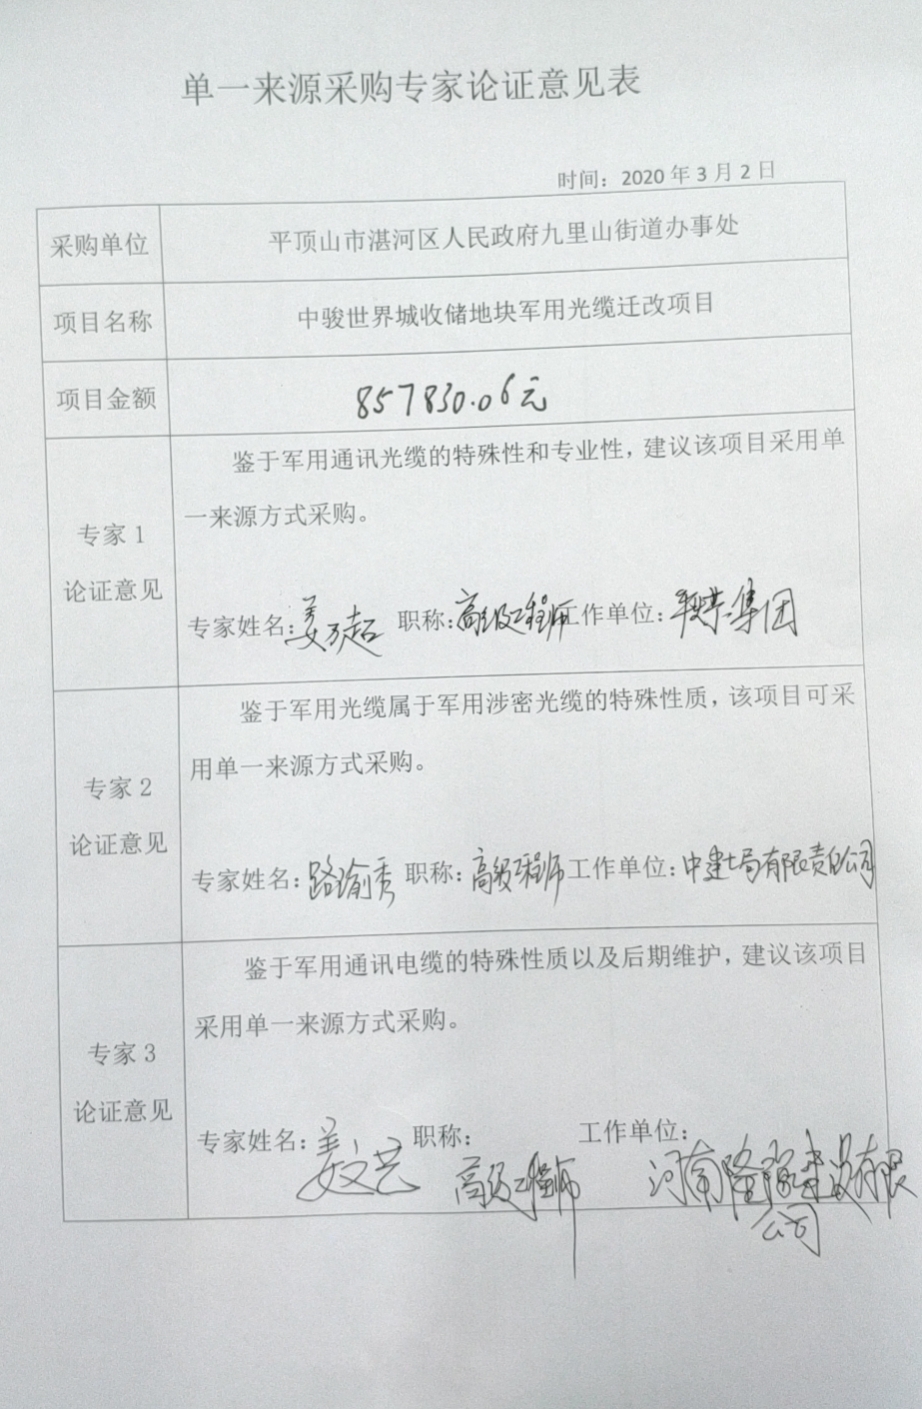 单一来源采购专家论证意见表
时间：2020 年 3 月 2 日
采购单位
平顶山市湛河区人民政府九里山街道办事处
项目名称
中骏世界城收储地块军用光缆迁改项目
项目金额
857830.06元
专家 1
论证意见
鉴于军用通讯光缆的特殊性和专业性，建议该项目采用单
一来源方式采购。
专家姓名：姜万超 职称：高级工程师 工作单位：集团
专家 2
论证意见
鉴于军用光缆属于军用涉密光缆的特殊性质，该项目可采
用单一来源方式采购。
专家姓名：路瑜秀 职称：高级工程师 工作单位：中建七局有限责任公司
专家 3
论证意见
鉴于军用通讯电缆的特殊性质以及后期维护，建议该项目
采用单一来源方式采购。
专家姓名：姜文艺 职称： 工作单位：
高级工程师 河南隆 建设有限
公司